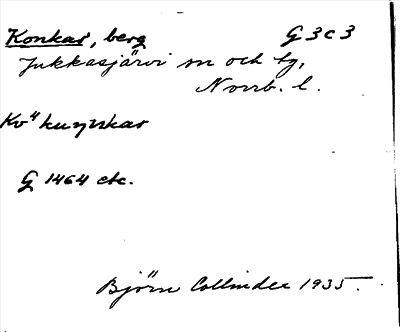 Konkas, berg G 3 c 3
Jukkasjärvi sn och tg,
Norrb. l.
Kv
G 1464 etc.
Björn Collinder 1935.